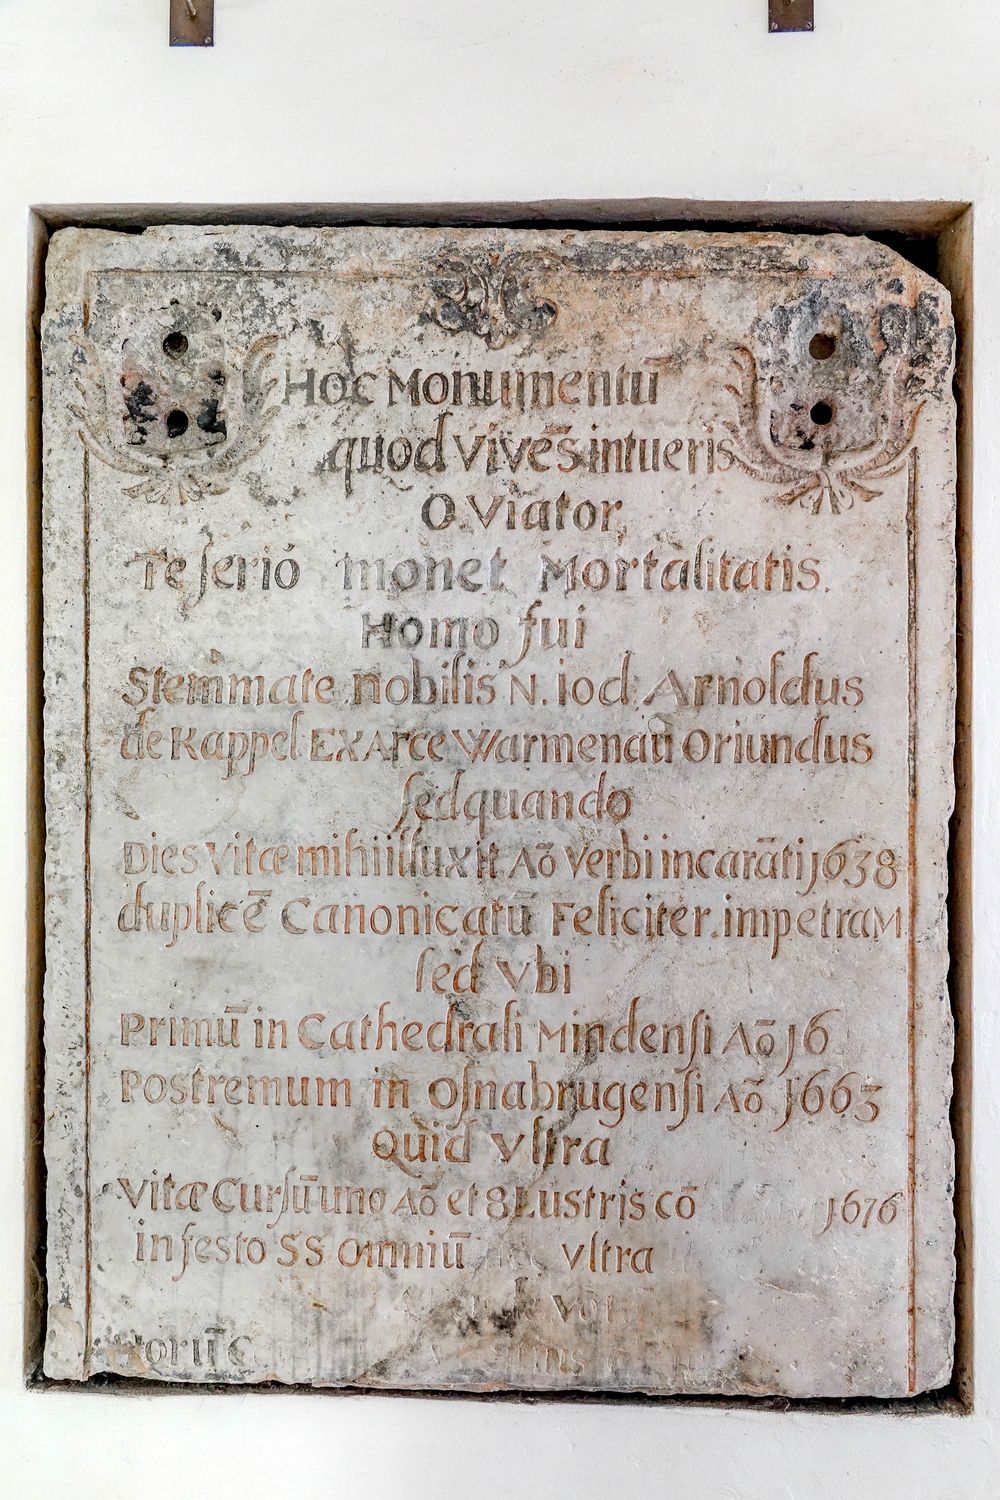 Hoc Monumentū
quod vivēs intueris
O. Viator
Te ſerió monet Mortalitatis.
Homo fui
Stemmate nobilis N. Iod. Arnoldus
de Kappel Ex Arce Warmenaū Oriundus
ſed quando
Dies Vitæ mihi illuxit Aō Verbi incarāti 1638
duplicē Canonicatū Feliciter impetraM
ſed Vbi
Primū in Cathedrali Mindenſi Aō 16
Postremum in Oſnabrugenſi Aō 1663
Quid Vltra
Vitæ Curſū uno Aō et 8 Lustris cō 1676
in festo SS Omniū Vltra